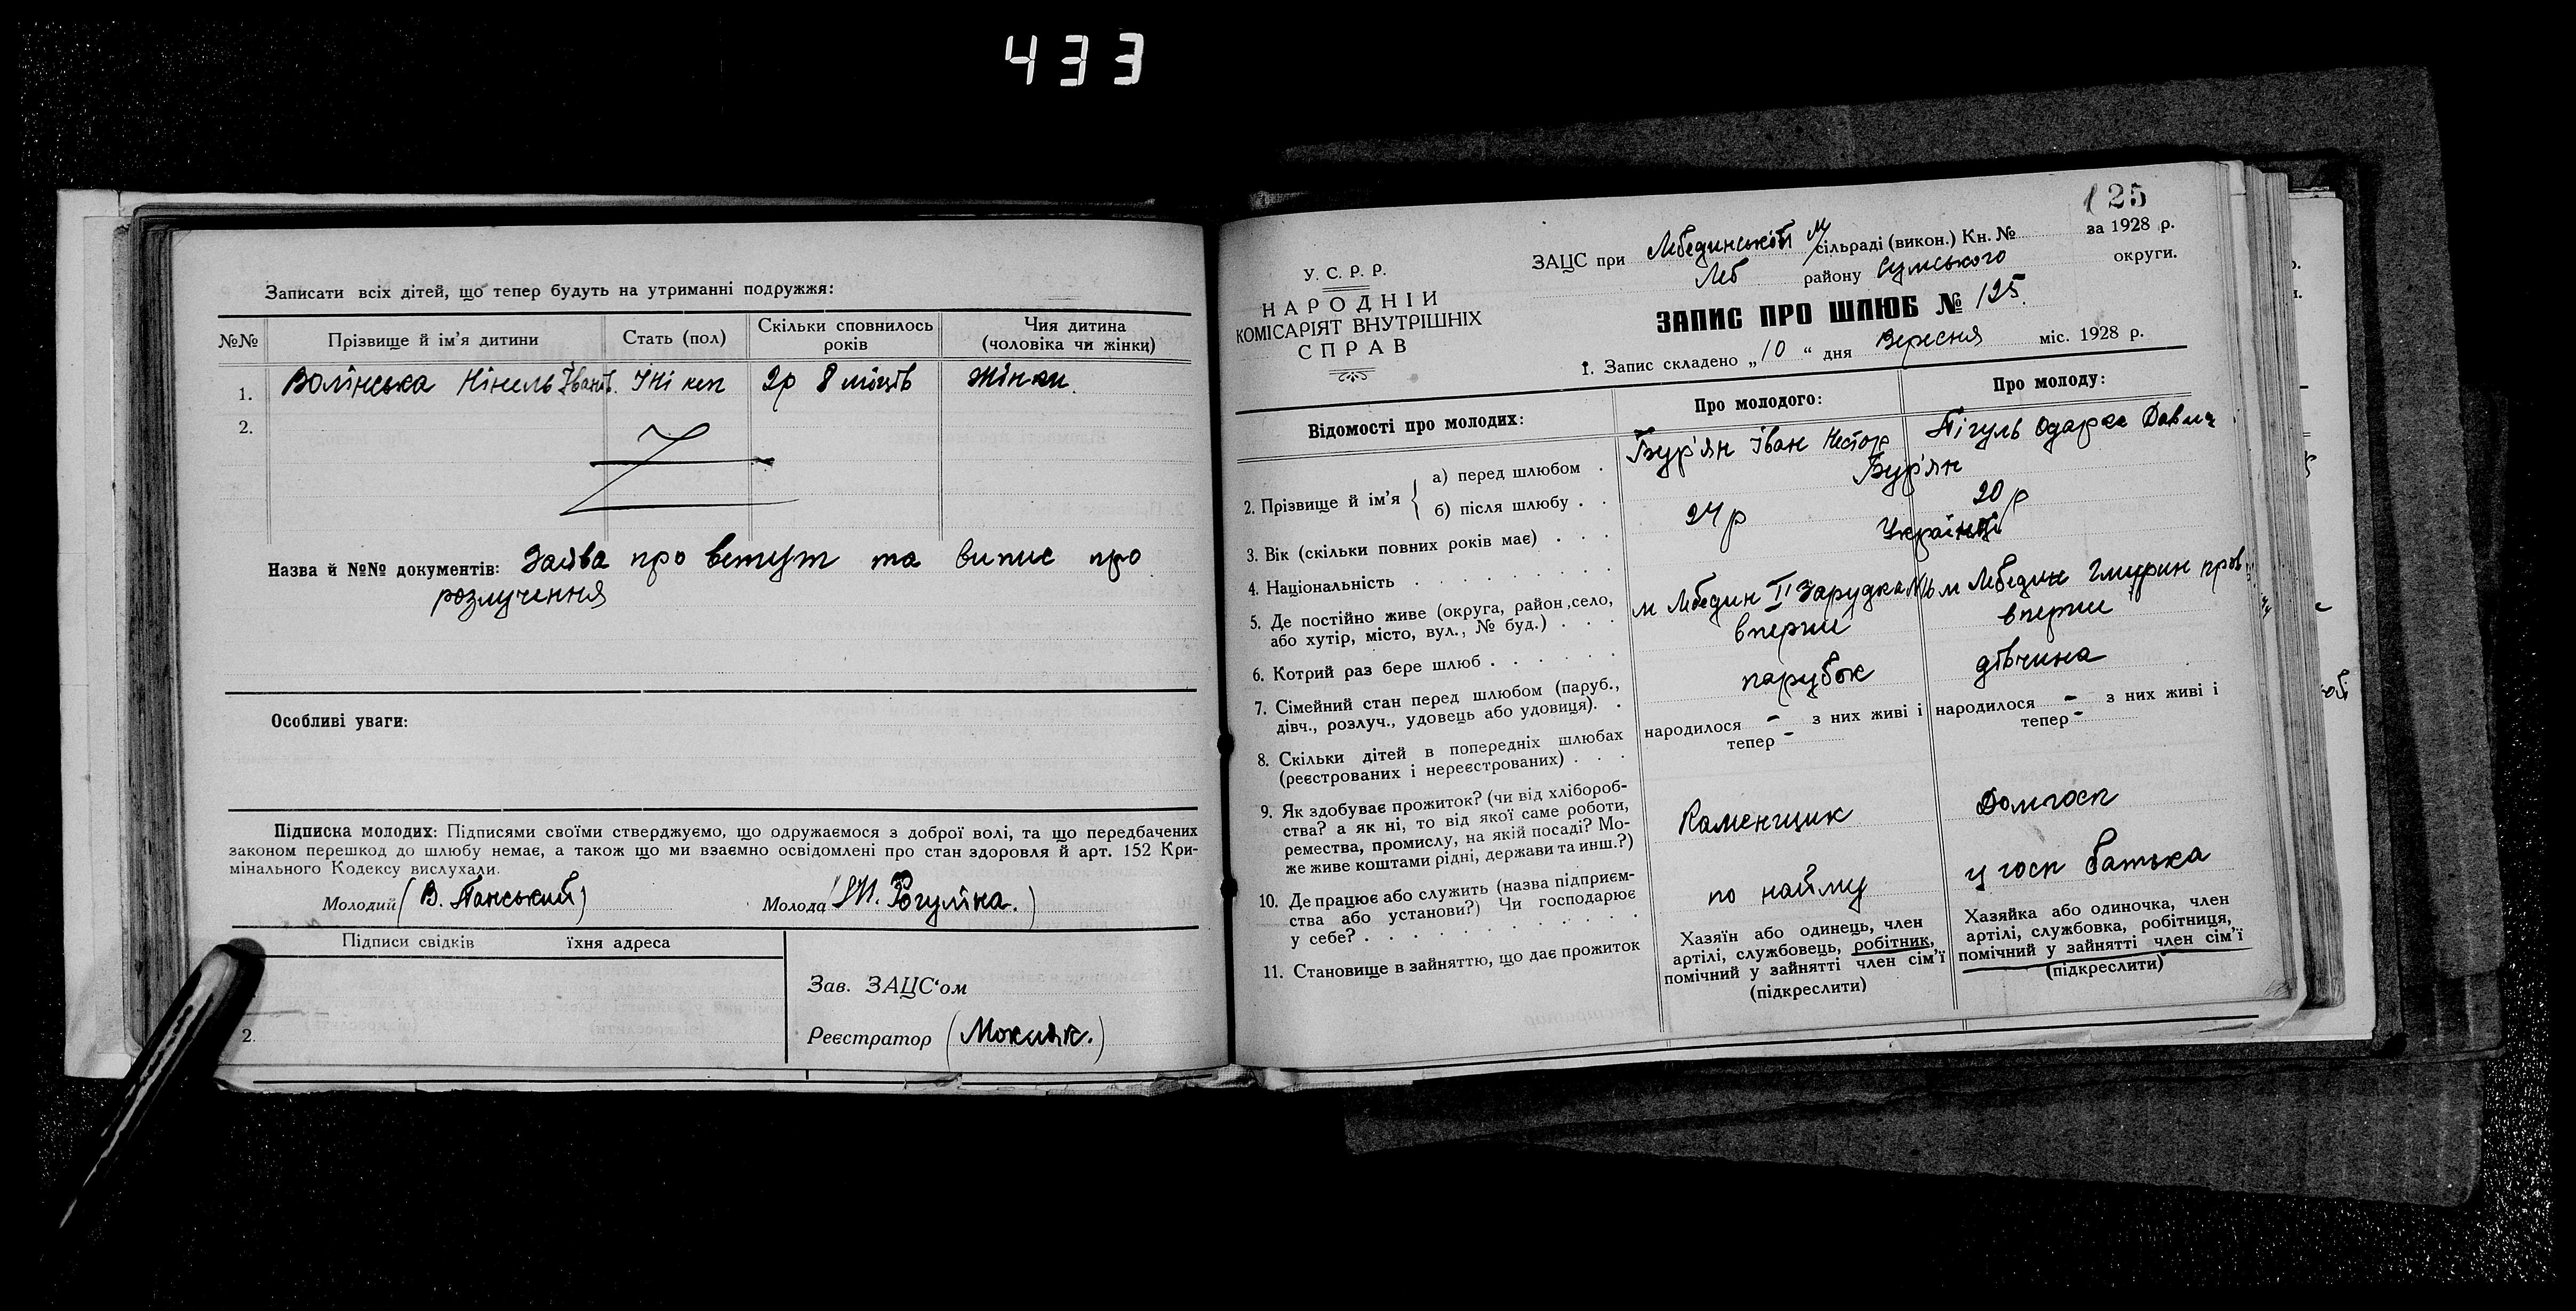 433
Записати всіх дітей, що тепер будуть на утриманні подружжя:
№№ Прізвище й ім'я дитини Стать (пол) Скільки сповнилось років Чия дитина (чоловіка чи жінки)
1. Волінська Нінель Іванів. Жі неп 2р 8 місців жінки
2.
Назва й №№ документів: Заява про вступ та випис про
розлучення
Особливі уваги:
Підписка молодих: Підписями своїми стверджуємо, що одружаємося з доброї волі, та що передбачених
законом перешкод до шлюбу немає, а також що ми взаємно освідомлені про стан здоровля й арт. 152 Кри-
мінального Кодексу вислухали.
Молодий (В. Панський) Молода (Н. Рогуліна.)
Підписи свідків їхня адреса
Зав. ЗАЦС'ом
2.
Реєстратор (Мокияк.)
125
У. С. Р. Р.
НАРОДНІЙ
КОМІСАРІЯТ ВНУТРІШНІХ
СПРАВ
ЗАЦС при Лебединській м/сільраді (викон.) Кн. № за 1928 р.
Леб району Сумського округи.
ЗАПИС ПРО ШЛЮБ № 125.
1. Запис складено „10“ дня Вересня міс. 1928 р.
Відомості про молодих: Про молодого: Про молоду:
2. Прізвище й ім'я
а) перед шлюбом . Бур'ян Іван Нестор Пігуль Одарка Давид
б) після шлюбу . . Бур'ян
3. Вік (скільки повних років має) . . . 24 р 20 р
4. Національність Українці
5. Де постійно живе (округа, район, село,
або хутір, місто, вул., № буд.) . . . м Лебедин II Зарудка м Лебедин пров
6. Котрий раз бере шлюб . . . . . . вперше вперше
7. Сімейний стан перед шлюбом (паруб.,
дівч., розлуч., удовець або удовиця). . парубок дівчина
8. Скільки дітей в попередніх шлюбах
(реєстрованих і нереєстрованих) . . . народилося - з них живі і тепер - народилося - з них живі і тепер -
9. Як здобуває прожиток? (чи від хлібороб-
ства? а як ні, то від якої саме роботи,
ремества, промислу, на якій посаді? Мо-
же живе коштами рідні, держави та инш.?) Каменщик Домгосп
10. Де працює або служить (назва підприєм-
ства або установи?) Чи господарює
у себе? . . . . . . . . . . по найму у госп батька
11. Становище в зайняттю, що дає прожиток
Хазяїн або одинець, член
артілі, службовець, робітник,
помічний у зайнятті член сім'ї
(підкреслити)
Хазяйка або одиночка, член
артілі, службовка, робітниця,
помічний у зайнятті член сім'ї
(підкреслити)